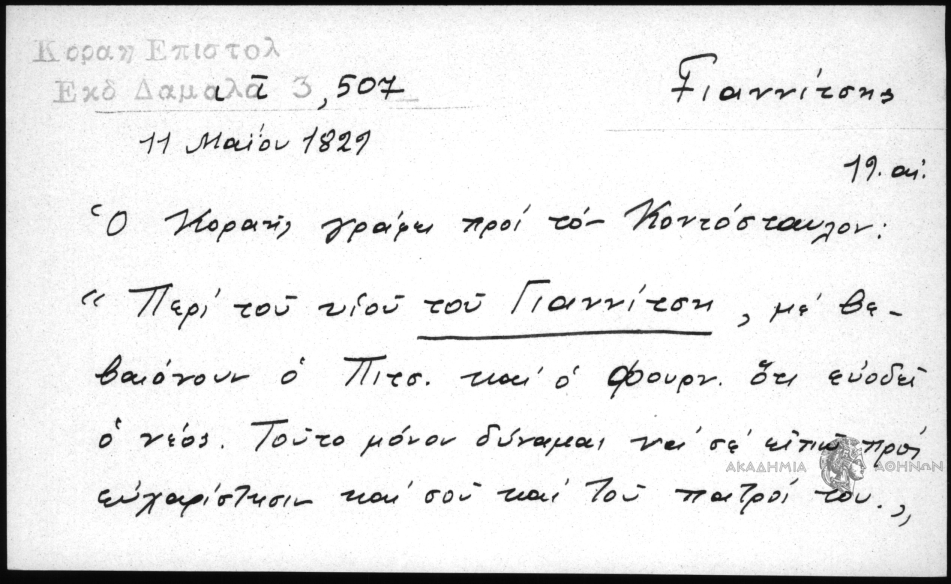 Κοραη Επιστολ
Εκδ Δαμαλα 3 , 507
Γιαννίτσης
11 Μαΐου 1829
19. αἰ.
Ὁ Κοραῆς γράφει πρὸς τὸν Κοντόσταυλον:
"Περὶ τοῦ υἱοῦ τοῦ Γιαννίτση, μὲ βε-
βαιόνουν ὁ Πιτσ. καὶ ὁ Φουρν. ὅτι εὐοδεῖ
ὁ νέος. Τοῦτο μόνον δύναμαι νὰ σὲ εἰπῶ πρὸς
ΑΚΑΔΗΜΙΑ ΑΘΗΝΩΝ
εὐχαρίστησιν καὶ σοῦ καὶ τοῦ πατρός του.,,